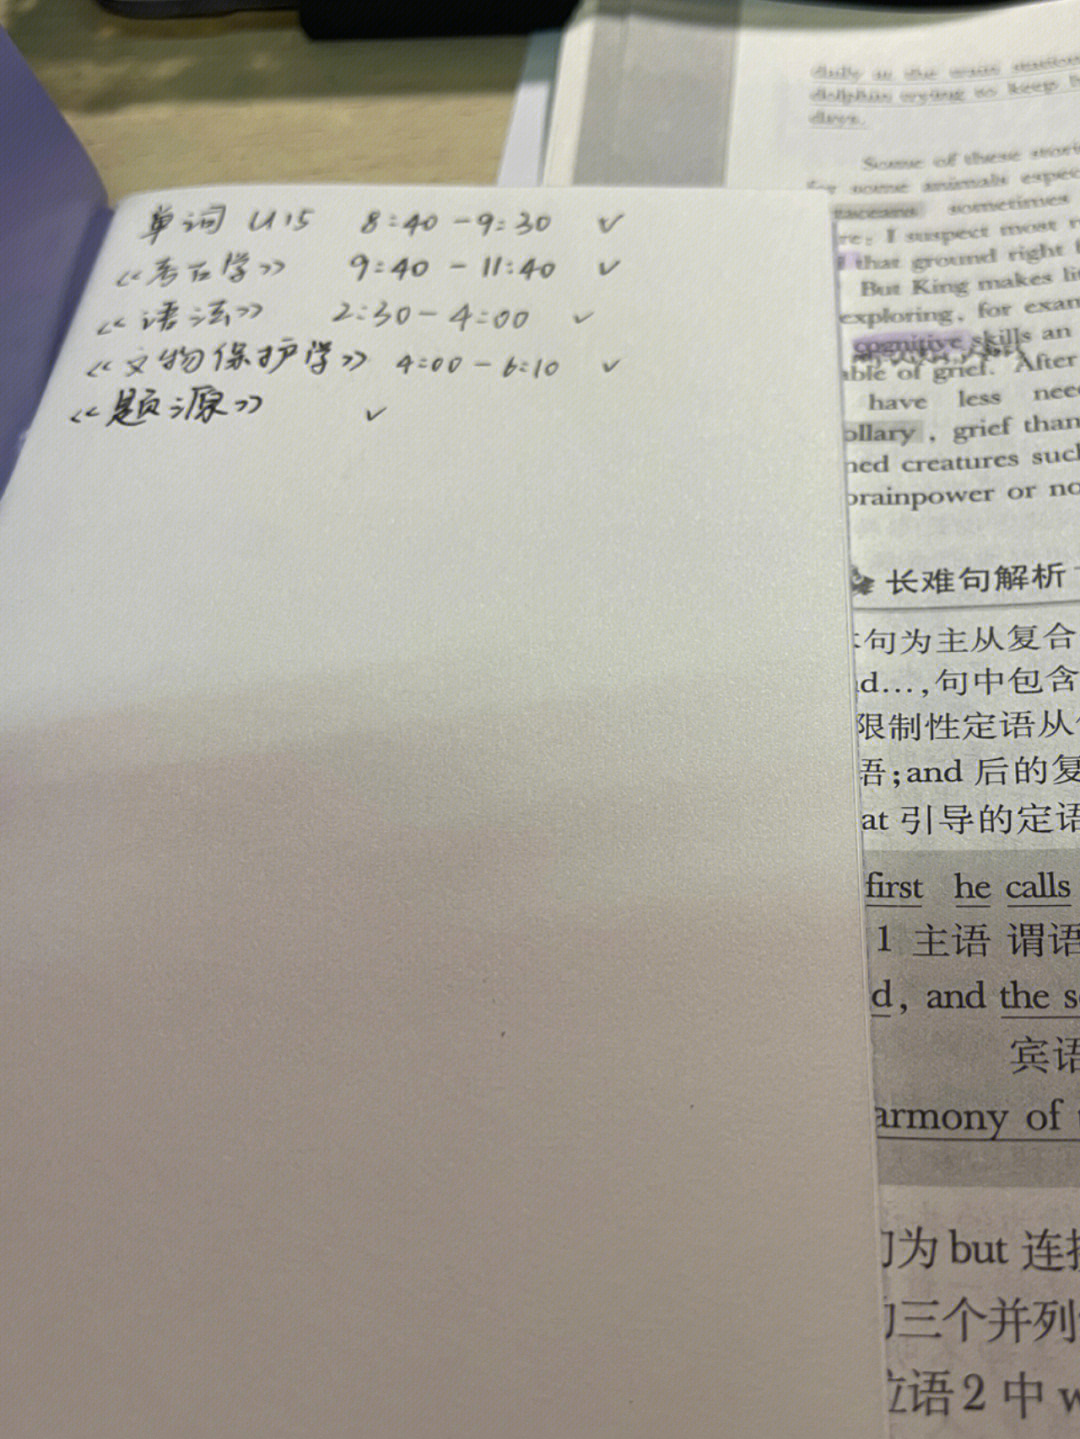 单词 U15 8:40-9:30 ✓
《考古学》 9:40-11:40 ✓
《语法》 2:30-4:00 ✓
《文物保护学》 4:00-6:10 ✓
《题源》 ✓
daily in the
dolphin trying to keep
days.
Some of these stories
for some animals
sometimes
I suspect most
that ground right
But King makes
exploring, for exam
cognitive skills an
able of grief. After
have less need
ollary, grief than
ned creatures such
brainpower or no
长难句解析
句为主从复合
nd…,句中包含
限制性定语从
语;and 后的复
at 引导的定语
first he calls
1 主语 谓语
d, and the s
宾语
armony of
为 but 连接
三个并列
位语2 中 w